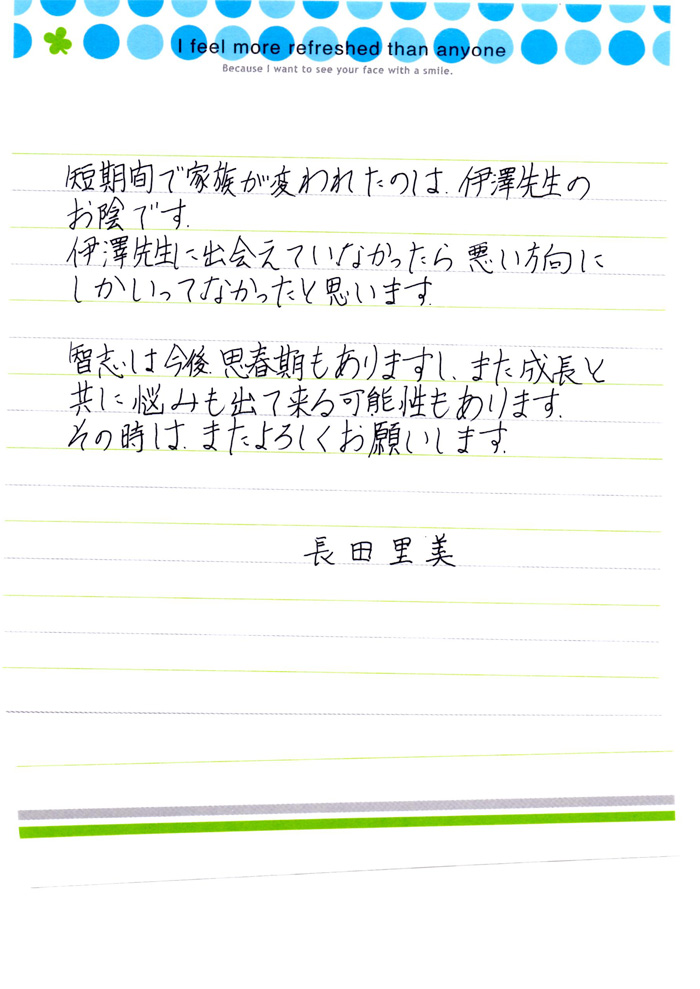 I feel more refreshed than anyone
Because I want to see your face with a smile.
短期間で家族が変われたのは、伊澤先生の
お陰です。
伊澤先生に出会えていなかったら 悪い方向に
しかいってなかったと思います。
智志は今後、思春期もありますし、また成長と
共に悩みも出て来る可能性もあります。
その時は、またよろしくお願いします。
長田里美